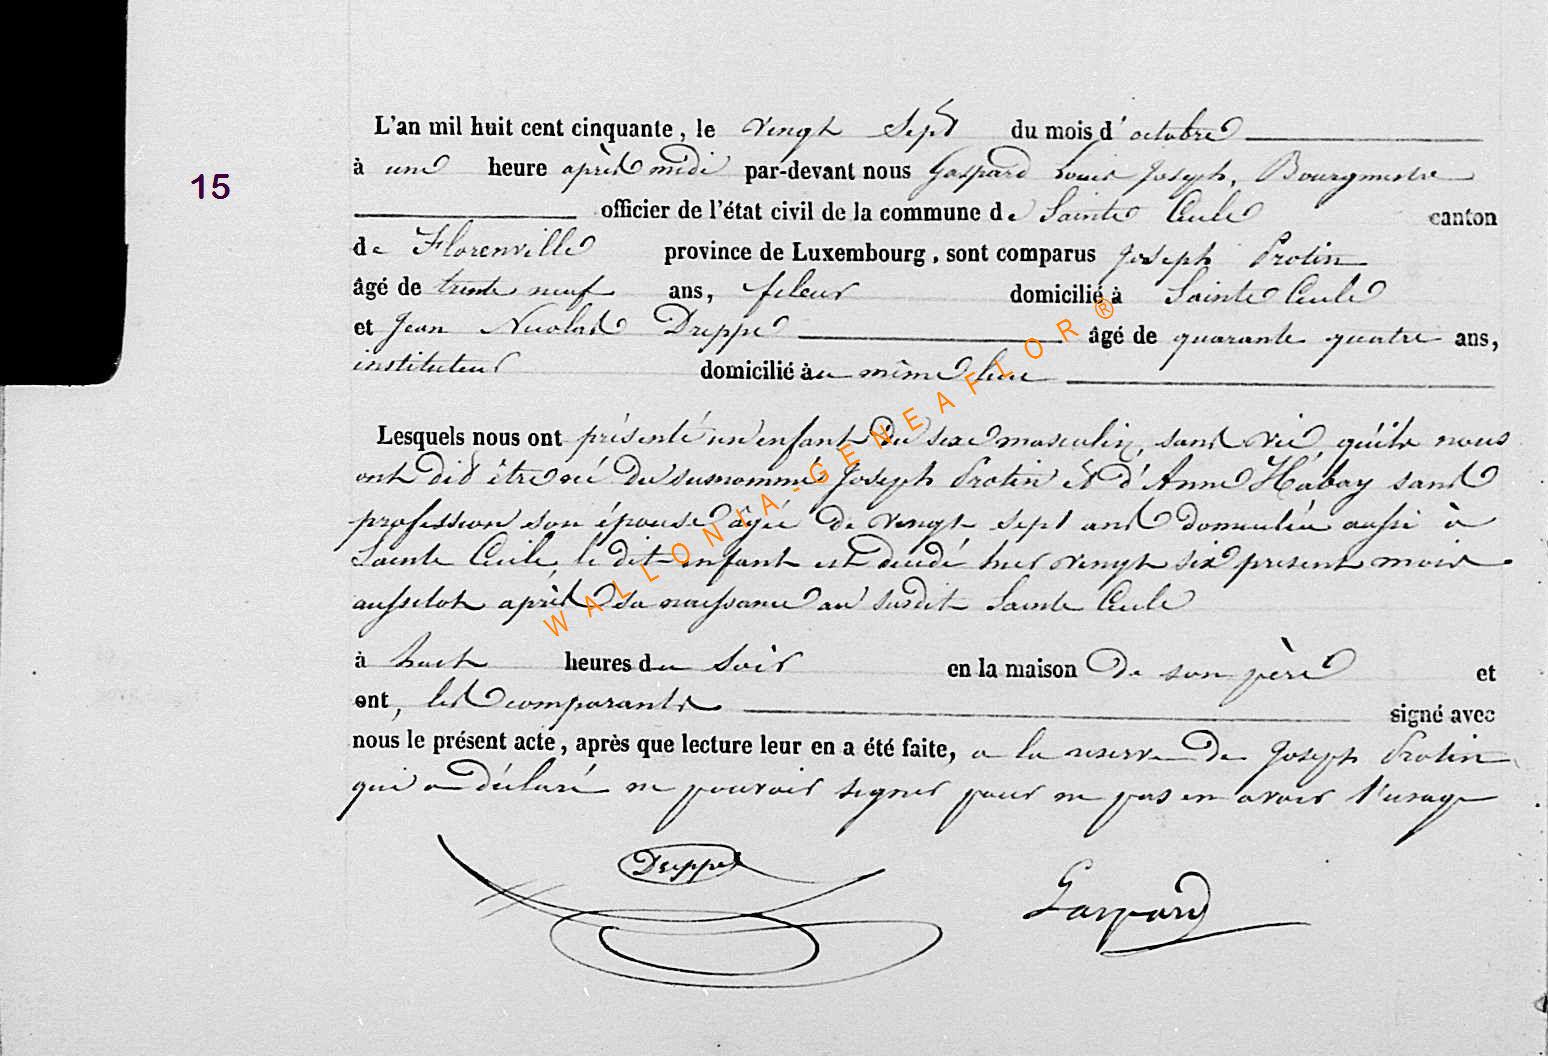 L'an mil huit cent cinquante, le vingt sept du mois d'octobre
15
à une heure après midi par-devant nous Gaspard Louis Joseph, Bourgmestre
officier de l'état civil de la commune de Sainte Cécile canton
de Florenville province de Luxembourg, sont comparus Joseph Protin
âgé de trente neuf ans, fileur domicilié à Sainte Cécile
et Jean Nicolas Dreppe âgé de quarante quatre ans,
instituteur domicilié au même lieu
Lesquels nous ont présenté un enfant du sexe masculin, sans vie, qu'ils nous
ont dit être né du susnommé Joseph Protin et d'Anne Habay sans
profession son épouse âgée de vingt sept ans domiciliée aussi à
Sainte Cécile, le dit enfant est décédé hier vingt six présent mois
aussitot après sa naissance au susdit Sainte Cécile
à huit heures du soir en la maison de son père et
ont, les comparants signé avec
nous le présent acte, après que lecture leur en a été faite, a la reserve de Joseph Protin
qui a déclaré ne pouvoir signer pour ne pas en avoir l'usage
Dreppe
Gaspard
WALLONIA-GENEAFLOR®